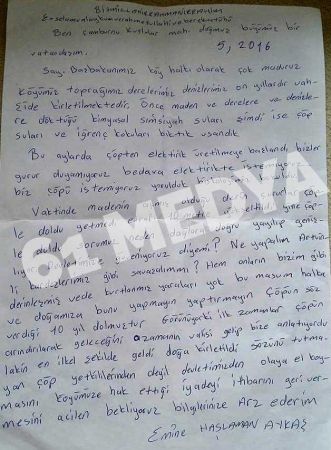 BİSMİLLAHİRRAHMANİRRAHİM
Esselamunaleykumverahmetullahivebereketühü
Ben Çamburnu Kutlular mah. doğmuş büyümüş bir
vatandaşım.
5, 2016
Say. Bazbakanımız köy halkı olarak çok mağduruz
Köyümüz toprağımız derelerimiz denizlerimiz on yıllardır vah-
şide kirletilmektedir. Önce maden ve derelere ve denizle-
re döktüğü kimyasal simsiyah suları şimdi ise çöp
suları ve iğrenç kokuları bıktık usandık
Bu aylarda çöpten elektirik üretilmeye bazlandı, bizler
gurur duyamıyoruz bedava elektirikte istemiyoruz
biz çöpü istemiyoruz yorulduk
Vaktinde madenin oldugu dere
le doldu yetmedi 10 metre yine çöp
le doldu sorumuz neden dağlara doğru yayılıp geniş-
liyor güveniyoruz diyemi? Ne yapalım Artvin
li kardeşlerimiz gibi savaşalımmı? Hem onların bizim gibi
derinleşmiş vede kurtlanmış yaraları yok bu masum halka
ve doğamıza bunu yapmayın yaptırmayın Çöpün söz
verdiği 10 yıl dolmuştur Görünüyorki ilk zamanlar çöpün
arındırılarak geleceğini o zamanın valisi gelip bize anlatıyordu
lakin en ilkel şekilde geldi doğa kirletildi sözünü tutma-
yan çöp yetkililerinden değil devletimizden olaya el koy-
masını köyümüze hak ettiği iyadeyi itibarını geri ver-
mesini acilen bekliyoruz bilgilerinize Arz ederim
Emine HAŞLAMAN AYKAŞ
61 MEDYA